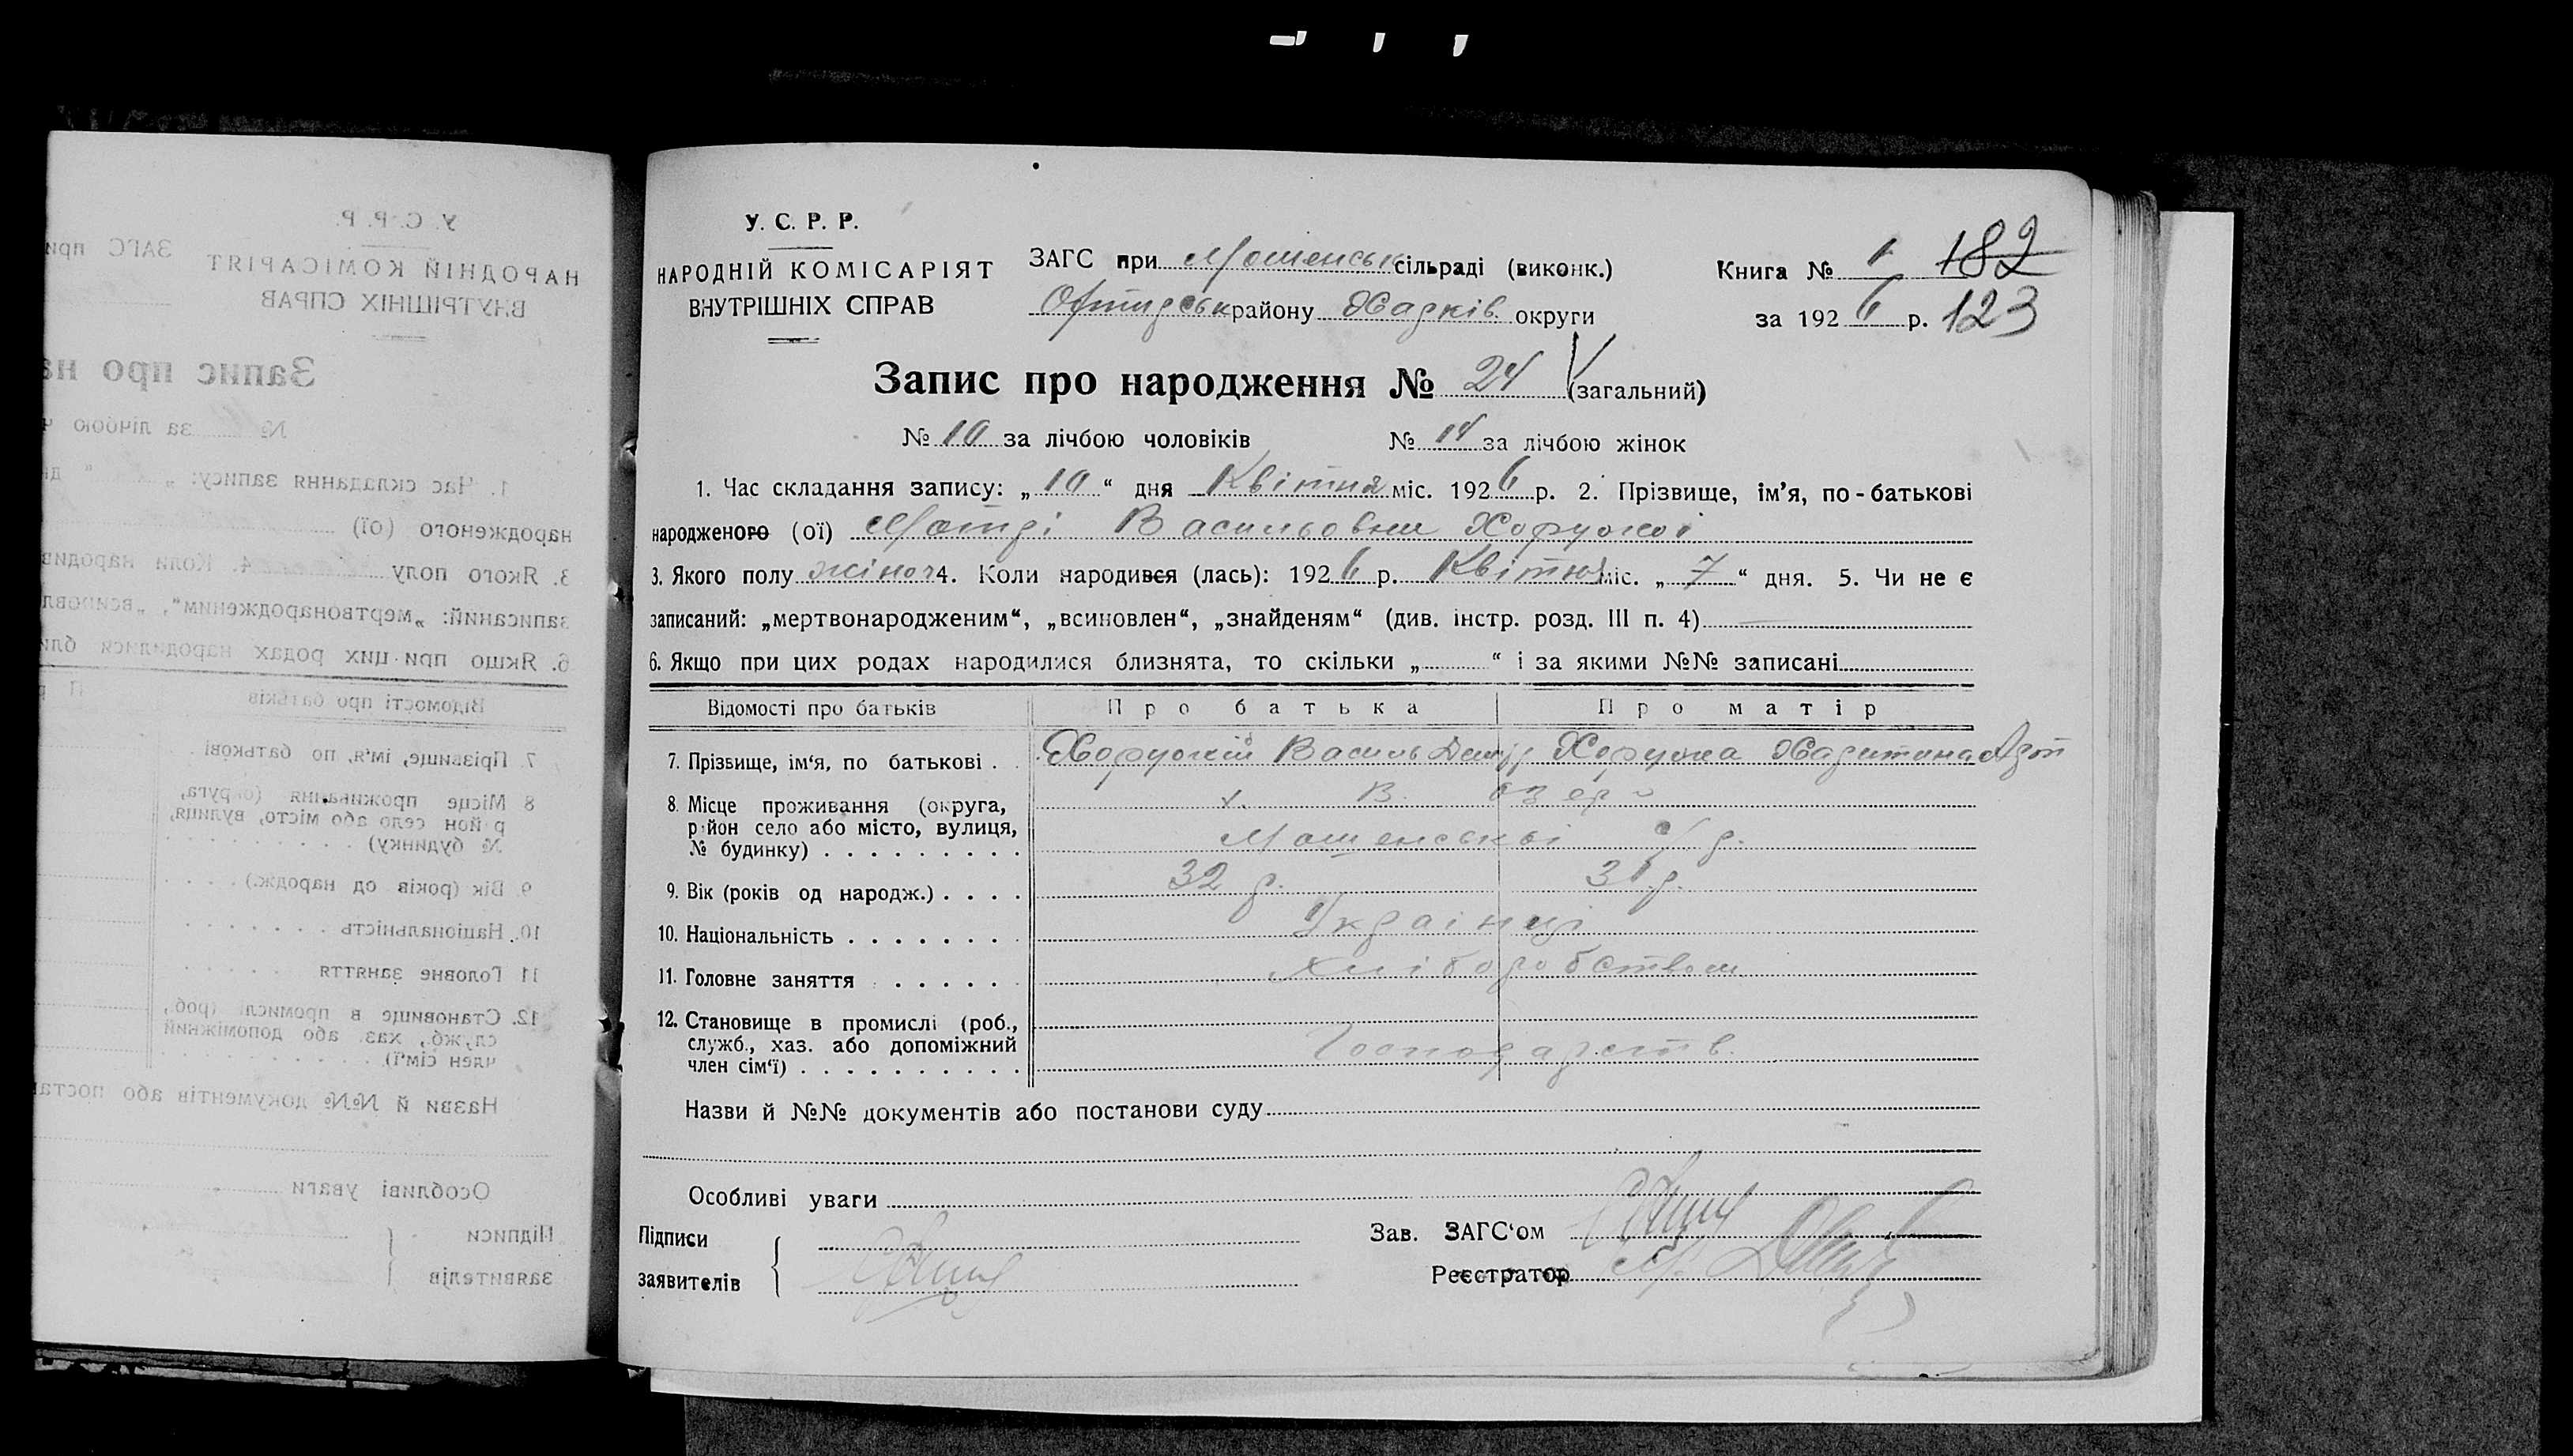 У. С. Р. Р.
НАРОДНІЙ КОМІСАРІЯТ
ВНУТРІШНІХ СПРАВ
ЗАГС при Мошенськ сільраді (виконк.)
району Харків. округи
Книга № 1 182
за 1926 р. 123
Запис про народження № 24 (загальний)
№ 10 за лічбою чоловіків № 14 за лічбою жінок
1. Час складання запису: „10“ дня Квітня міс. 1926 р. 2. Прізвище, ім’я, по-батькові
народженого (ої) Мотрі Василовни Хоружої
3. Якого полу жіноч 4. Коли народився (лась): 1926 р. Квітня міс. „7“ дня. 5. Чи не є
записаний: „мертвонародженим“, „всиновлен“, „знайденям“ (див. інстр. розд. III п. 4)
6. Якщо при цих родах народилися близнята, то скільки „ “ і за якими №№ записані
Відомості про батьків Про батька Про матір
7. Прізвище, ім‘я, по батькові . . Хоружий Василь Хоружа Харитина
8. Місце проживання (округа, х. В. Озера
район село або місто, вулиця,
№ будинку) . . . . . . . . . Мошенської с/р.
9. Вік (років од народж.) . . . . 32 р. 31 р.
10. Національність . . . . . . . . Українці
11. Головне заняття . . . . . . хліборобством
12. Становище в промислі (роб.,
служб., хаз. або допоміжний
член сім‘ї) . . . . . . . . . . Господарств.
Назви й №№ документів або постанови суду
Особливі уваги
Підписи
заявителів
Зав. ЗАГС‘ом
Реєстратор